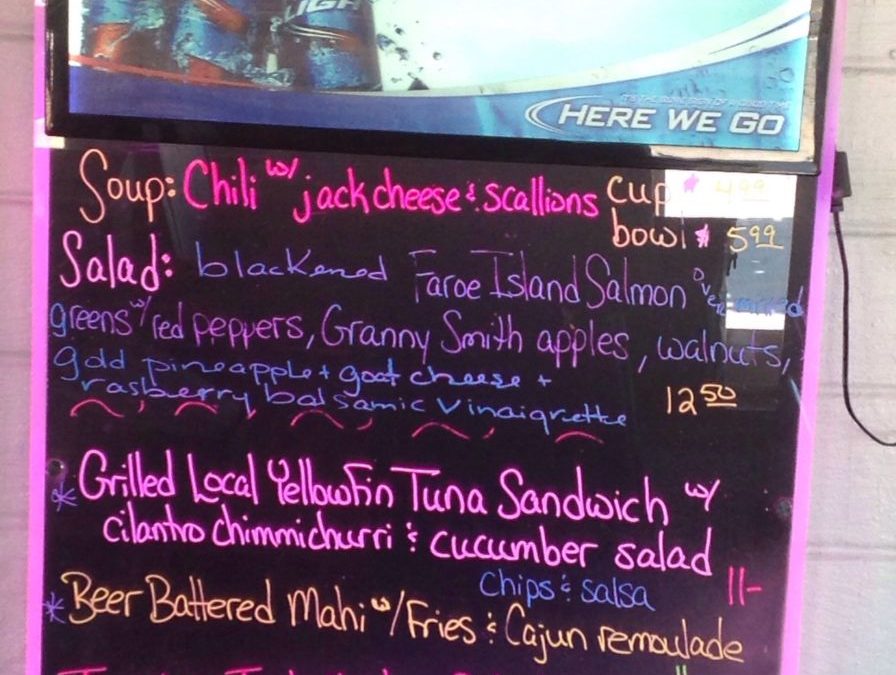 LIGHT
HERE WE GO
Soup: Chili w/ jack cheese & scallions cup $ 4.99
bowl $ 5 99
Salad: blackened Faroe Island Salmon over mixed
greens w/ red peppers, Granny Smith apples, walnuts,
gold pineapple + goat cheese +
rasberry balsamic vinaigrette 12 50
* Grilled Local Yellowfin Tuna Sandwich w/
cilantro chimmichurri & cucumber salad
Chips & salsa 11-
* Beer Battered Mahi w/ Fries & Cajun remoulade